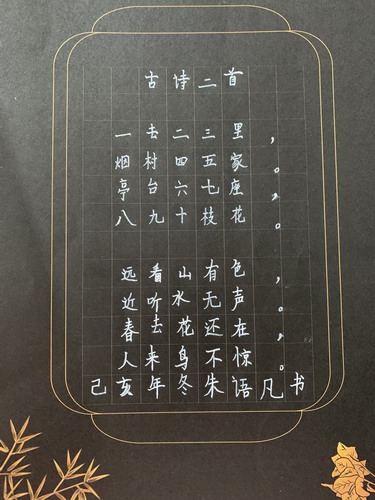 古诗二首
一去二三里，
烟村四五家。
亭台六七座，
八九十枝花。
远看山有色，
近听水无声。
春去花还在，
人来鸟不惊。
己亥年冬朱语凡书